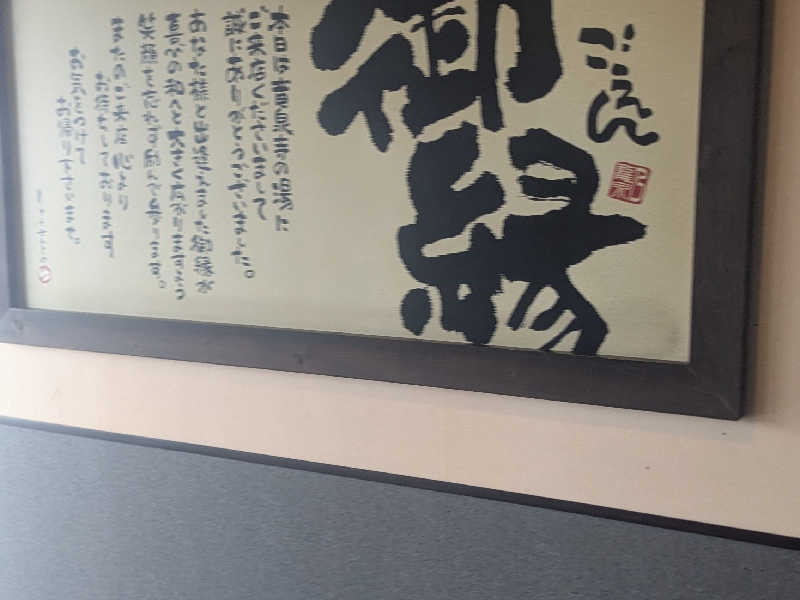 ごえん
御縁
本日は音泉寺の湯に
ご来店くださいまして
誠にありがとうございました。
あなた様と出逢えました御縁が
喜びの和へと大きく広がりますよう
笑顔を忘れず励んで参ります。
またのご来店 心より
お待ちしております。
お気をつけて
お帰り下さいませ。